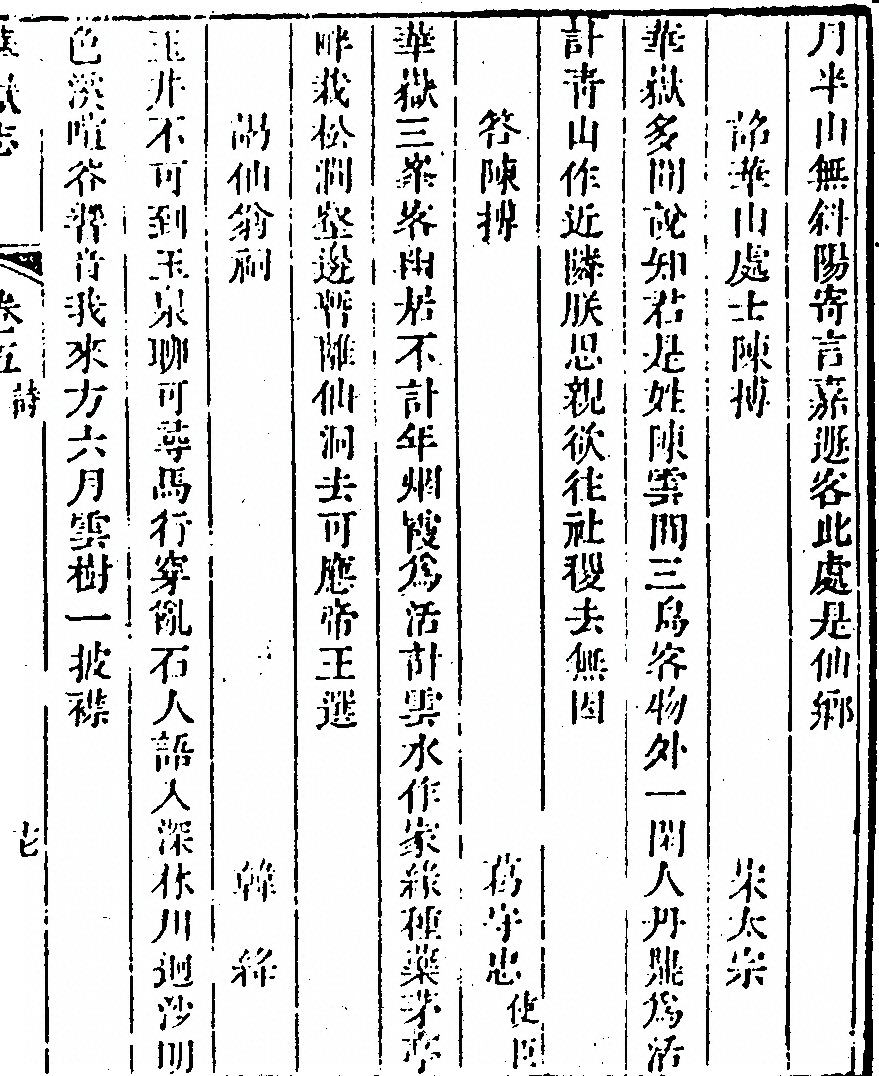 月半山無斜陽寄言嘉遯客此處是仙鄉
詔華山處士陳摶 宋太宗
華嶽多聞說知君是姓陳雲間三島客物外一閑人丹鼎爲活
計青山作近隣朕思親欲往社稷去無因
答陳摶 葛守忠使臣
華嶽三峯客幽居不計年烟霞爲活計雲水作家緣種藥茅亭
畔栽松澗壑邊暫離仙洞去可應帝王選
謁仙翁祠 韓絳
玉井不可到玉泉聊可尋馬行穿亂石人語入深林川迴沙明
色溪喧谷響音我來方六月雲樹一披襟
華嶽志 卷五 詩